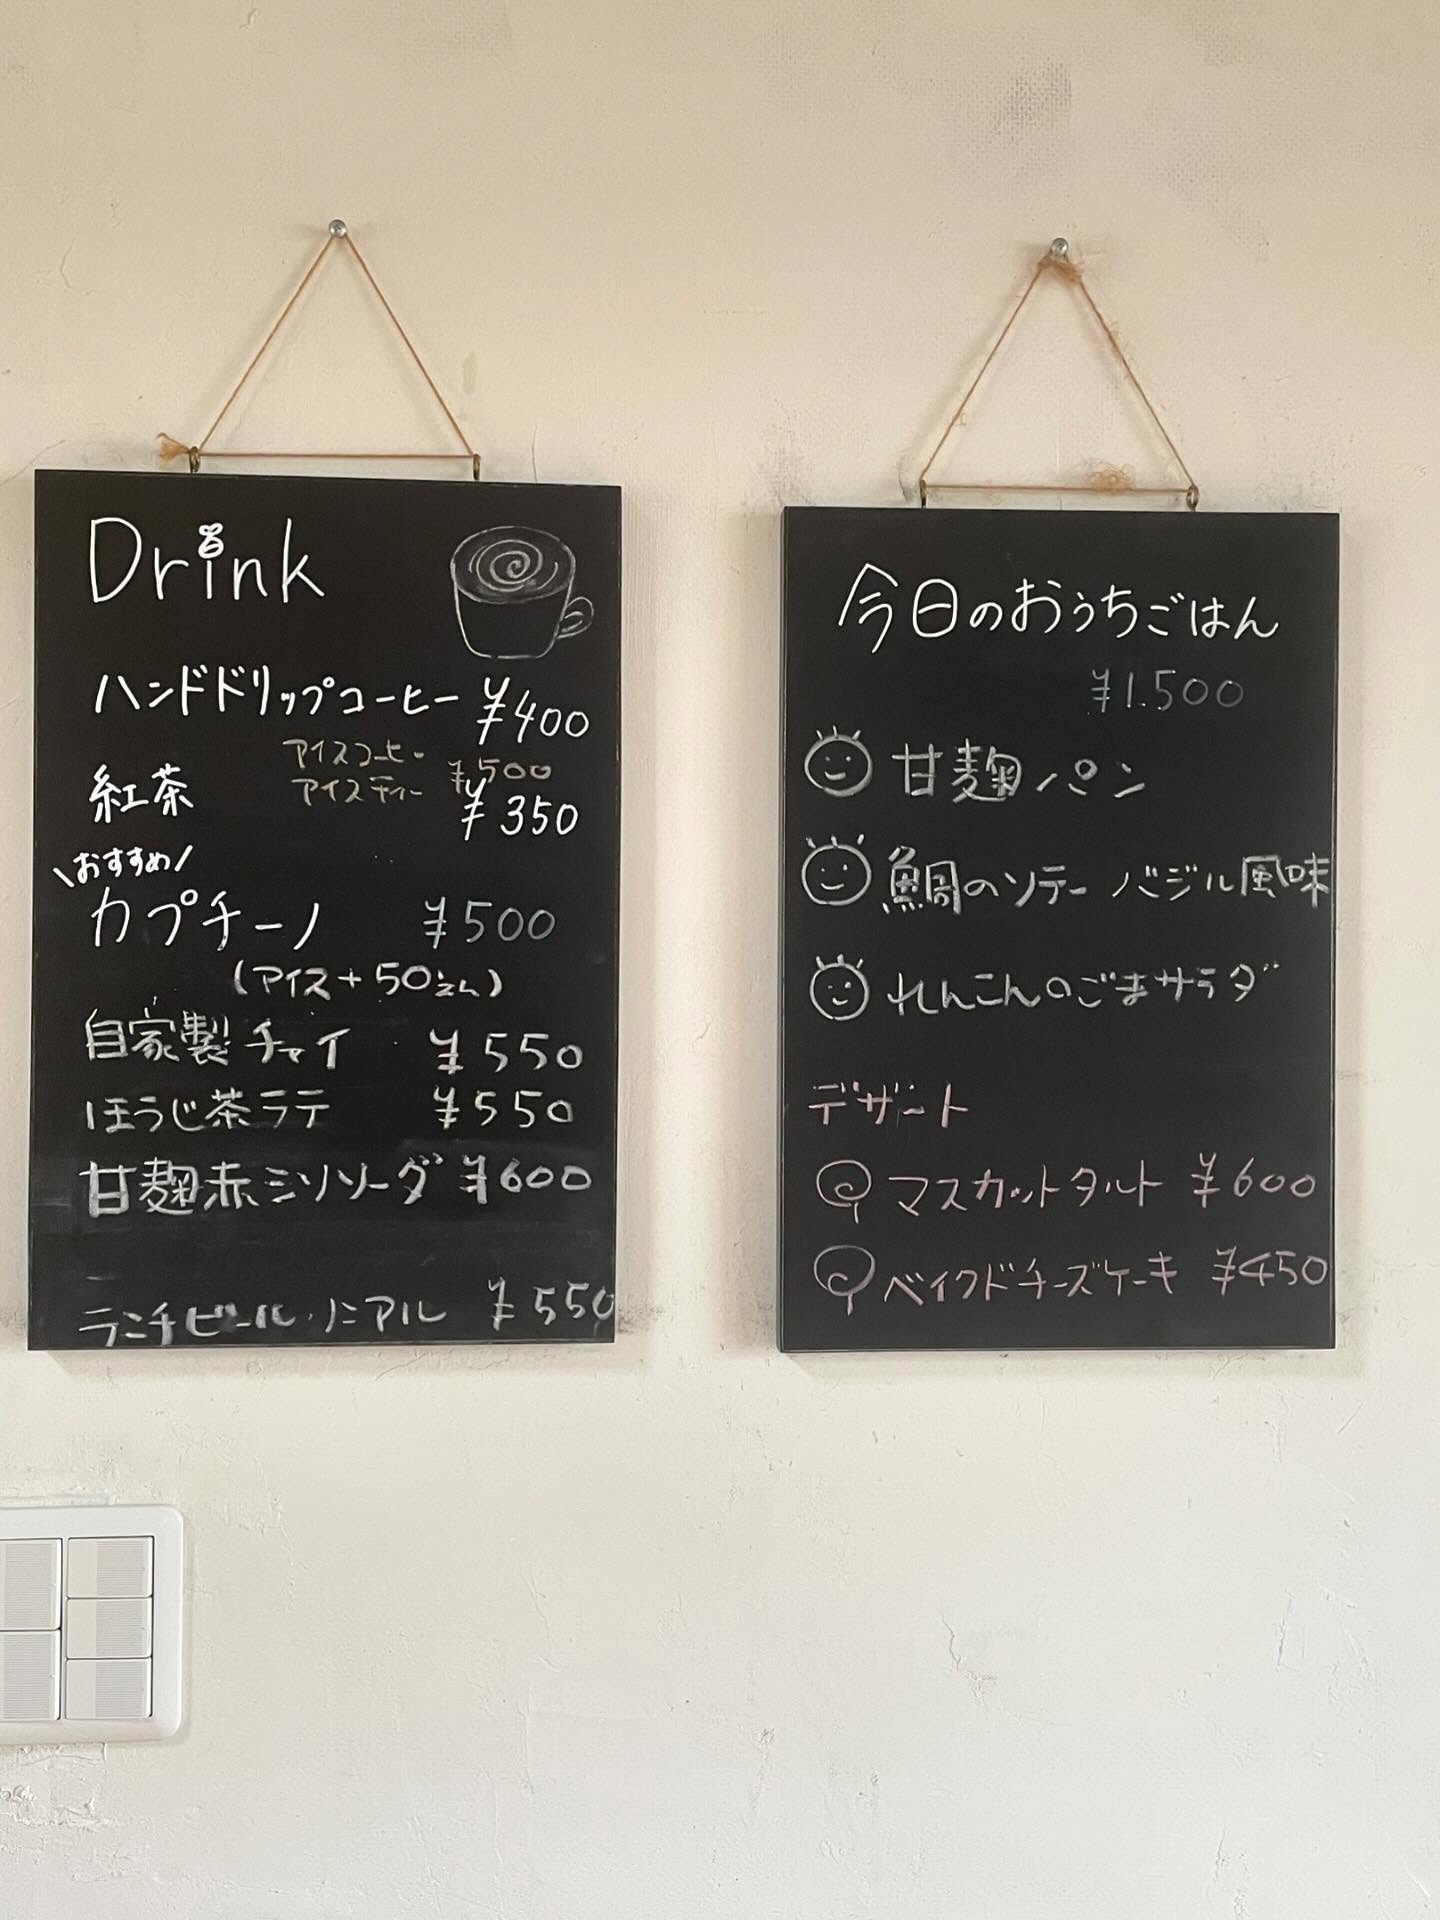 Drink
ハンドドリップコーヒー ¥400
アイスコーヒー
アイスティー ¥500
紅茶 ¥350
\おすすめ/
カプチーノ ¥500
(アイス+50えん)
自家製チャイ ¥550
ほうじ茶ラテ ¥550
甘麹赤ミソソーダ ¥600
ランチビール・ノンアル ¥550
今日のおうちごはん
¥1.500
甘麹パン
鯛のソテー バジル風味
れんこんのごまサラダ
デザート
マスカットタルト ¥600
ベイクドチーズケーキ ¥450